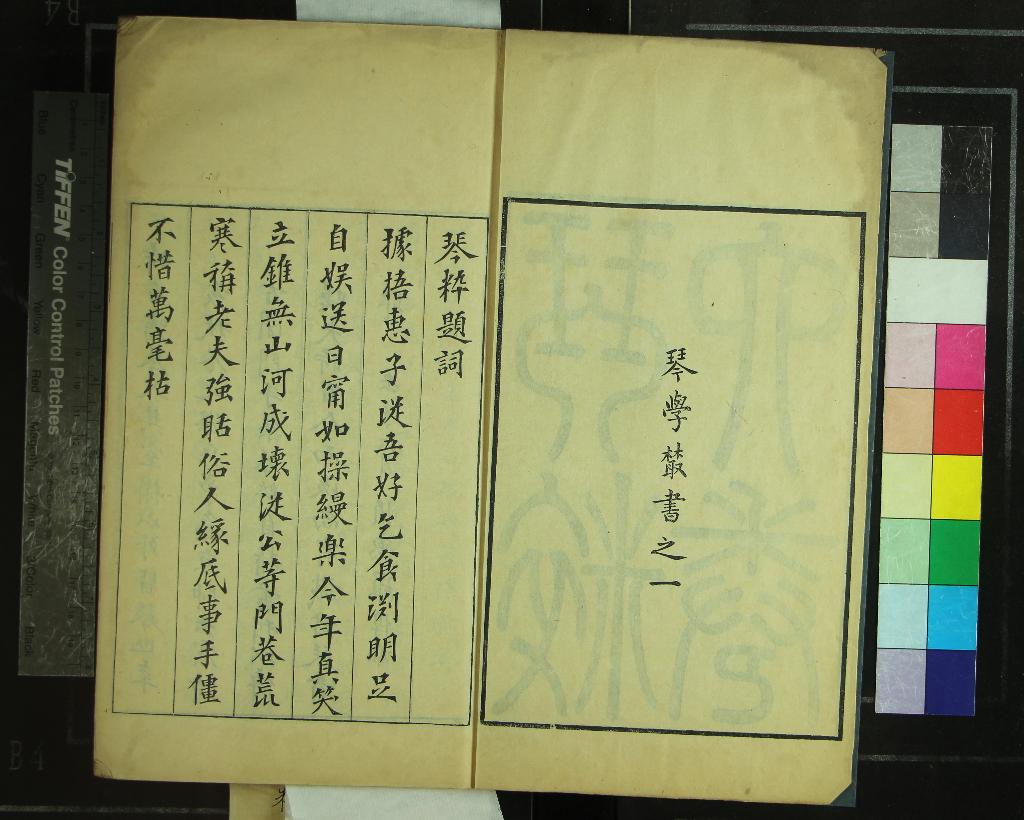 琴學叢書之一
琴粹題詞
據梧惠子從吾好乞食渕明足
自娛送日甯如操縵樂今年真笑
立錐無山河成壞從公等門巷荒
寒稱老夫強聒俗人緣底事手僵
不惜萬毫枯
TIFFEN Color Control Patches
Blue Cyan Green Yellow Red Magenta White 3/Color Black
Centimetres
B4